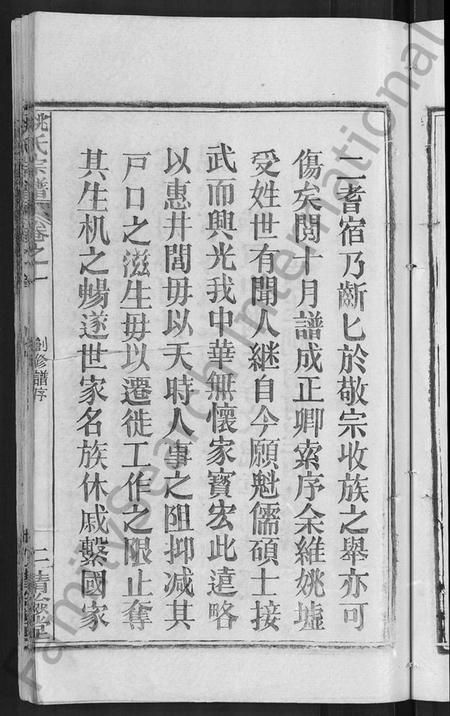 二耆宿乃斷匕於敬宗收族之舉亦可
傷矣閱十月譜成正卿索序余維姚墟
受姓世有聞人継自今願魁儒碩士接
武而興光我中華無懷家寳宏此遠略
以惠井閭毋以天時人事之阻抑減其
戸口之滋生毋以遷徙工作之限止奪
其生机之暢遂世家名族休戚繫國家
姚氏宗譜 卷之一
創修譜序
二
FamilySearch International